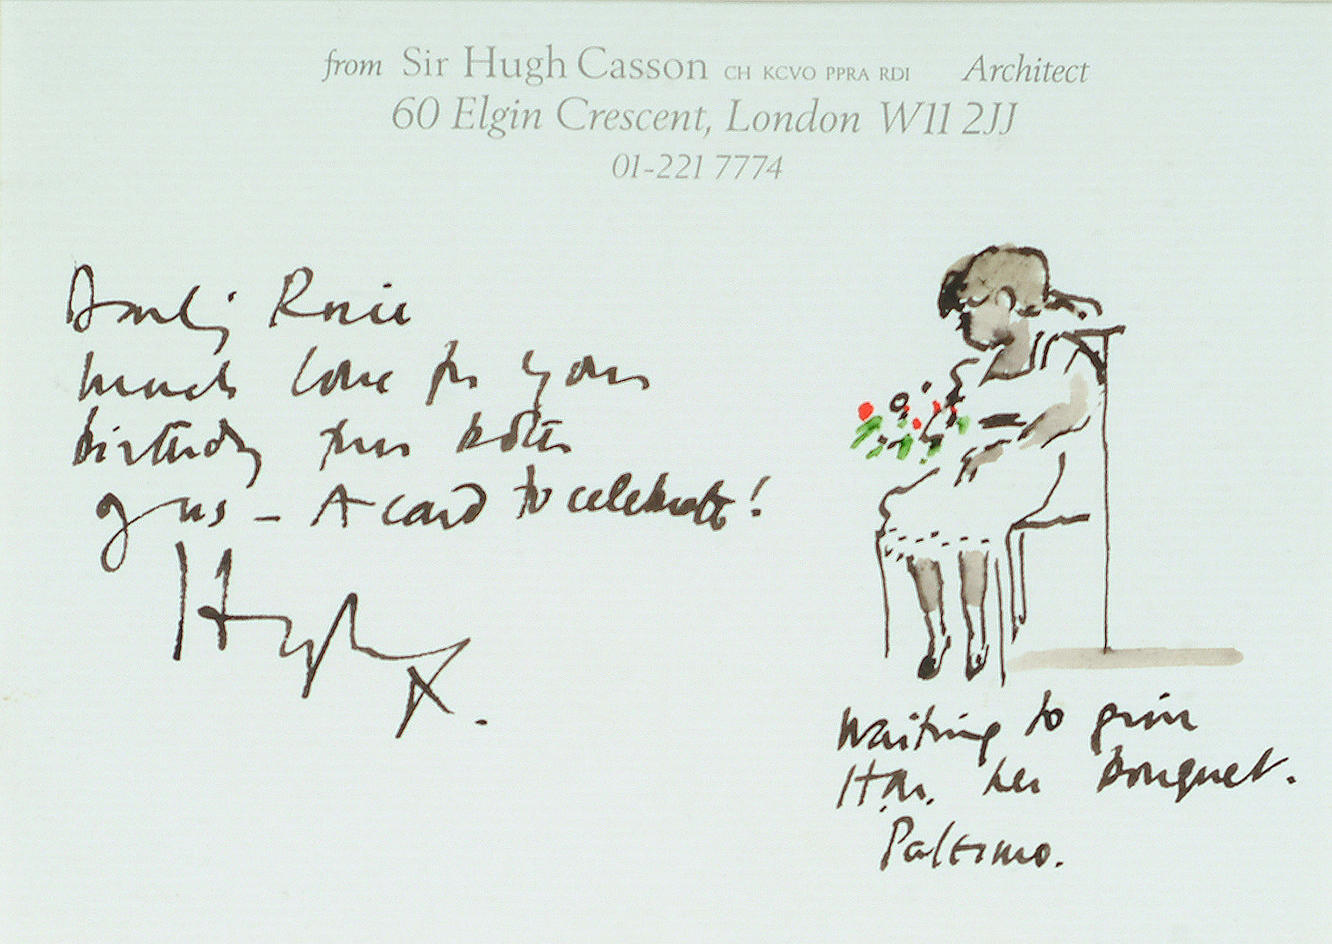 from Sir Hugh Casson CH KCVO PPRA RDI Architect
60 Elgin Crescent, London W11 2JJ
01-221 7774
Darling Rosie
much love for your
birthday from both
of us – A card to celebrate!
Hugh X.
Waiting to give
H.M. her bouquet.
Palermo.